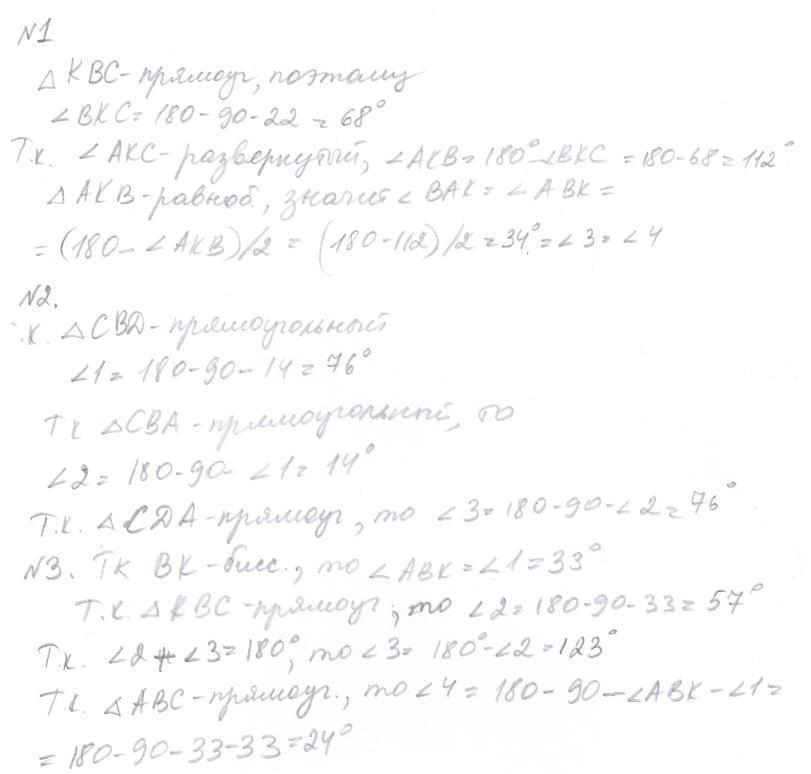 №1
△ KBC - прямоуг, поэтому
∠BKC = 180 - 90 - 22 = 68°
Т.к. ∠AKC - развернутый, ∠AKB = 180° - ∠BKC = 180 - 68 = 112°
△ AKB - равноб., значит ∠BAK = ∠ABK =
= (180 - ∠AKB)/2 = (180 - 112)/2 = 34° = ∠3 = ∠4
№2.
.к. △CBD - прямоугольный
∠1 = 180 - 90 - 14 = 76°
Тк △CBA - прямоугольный, то
∠2 = 180 - 90 - ∠1 = 14°
Т.к. △CDA - прямоуг, то ∠3 = 180 - 90 - ∠2 = 76°
№3. Тк BK - бисс., то ∠ABK = ∠1 = 33°
Т.к. △KBC - прямоуг, то ∠2 = 180 - 90 - 33 = 57°
Т.к. ∠2 + ∠3 = 180°, то ∠3 = 180° - ∠2 = 123°
Т.к. △ABC - прямоуг., то ∠4 = 180 - 90 - ∠ABK - ∠1 =
= 180 - 90 - 33 - 33 = 24°